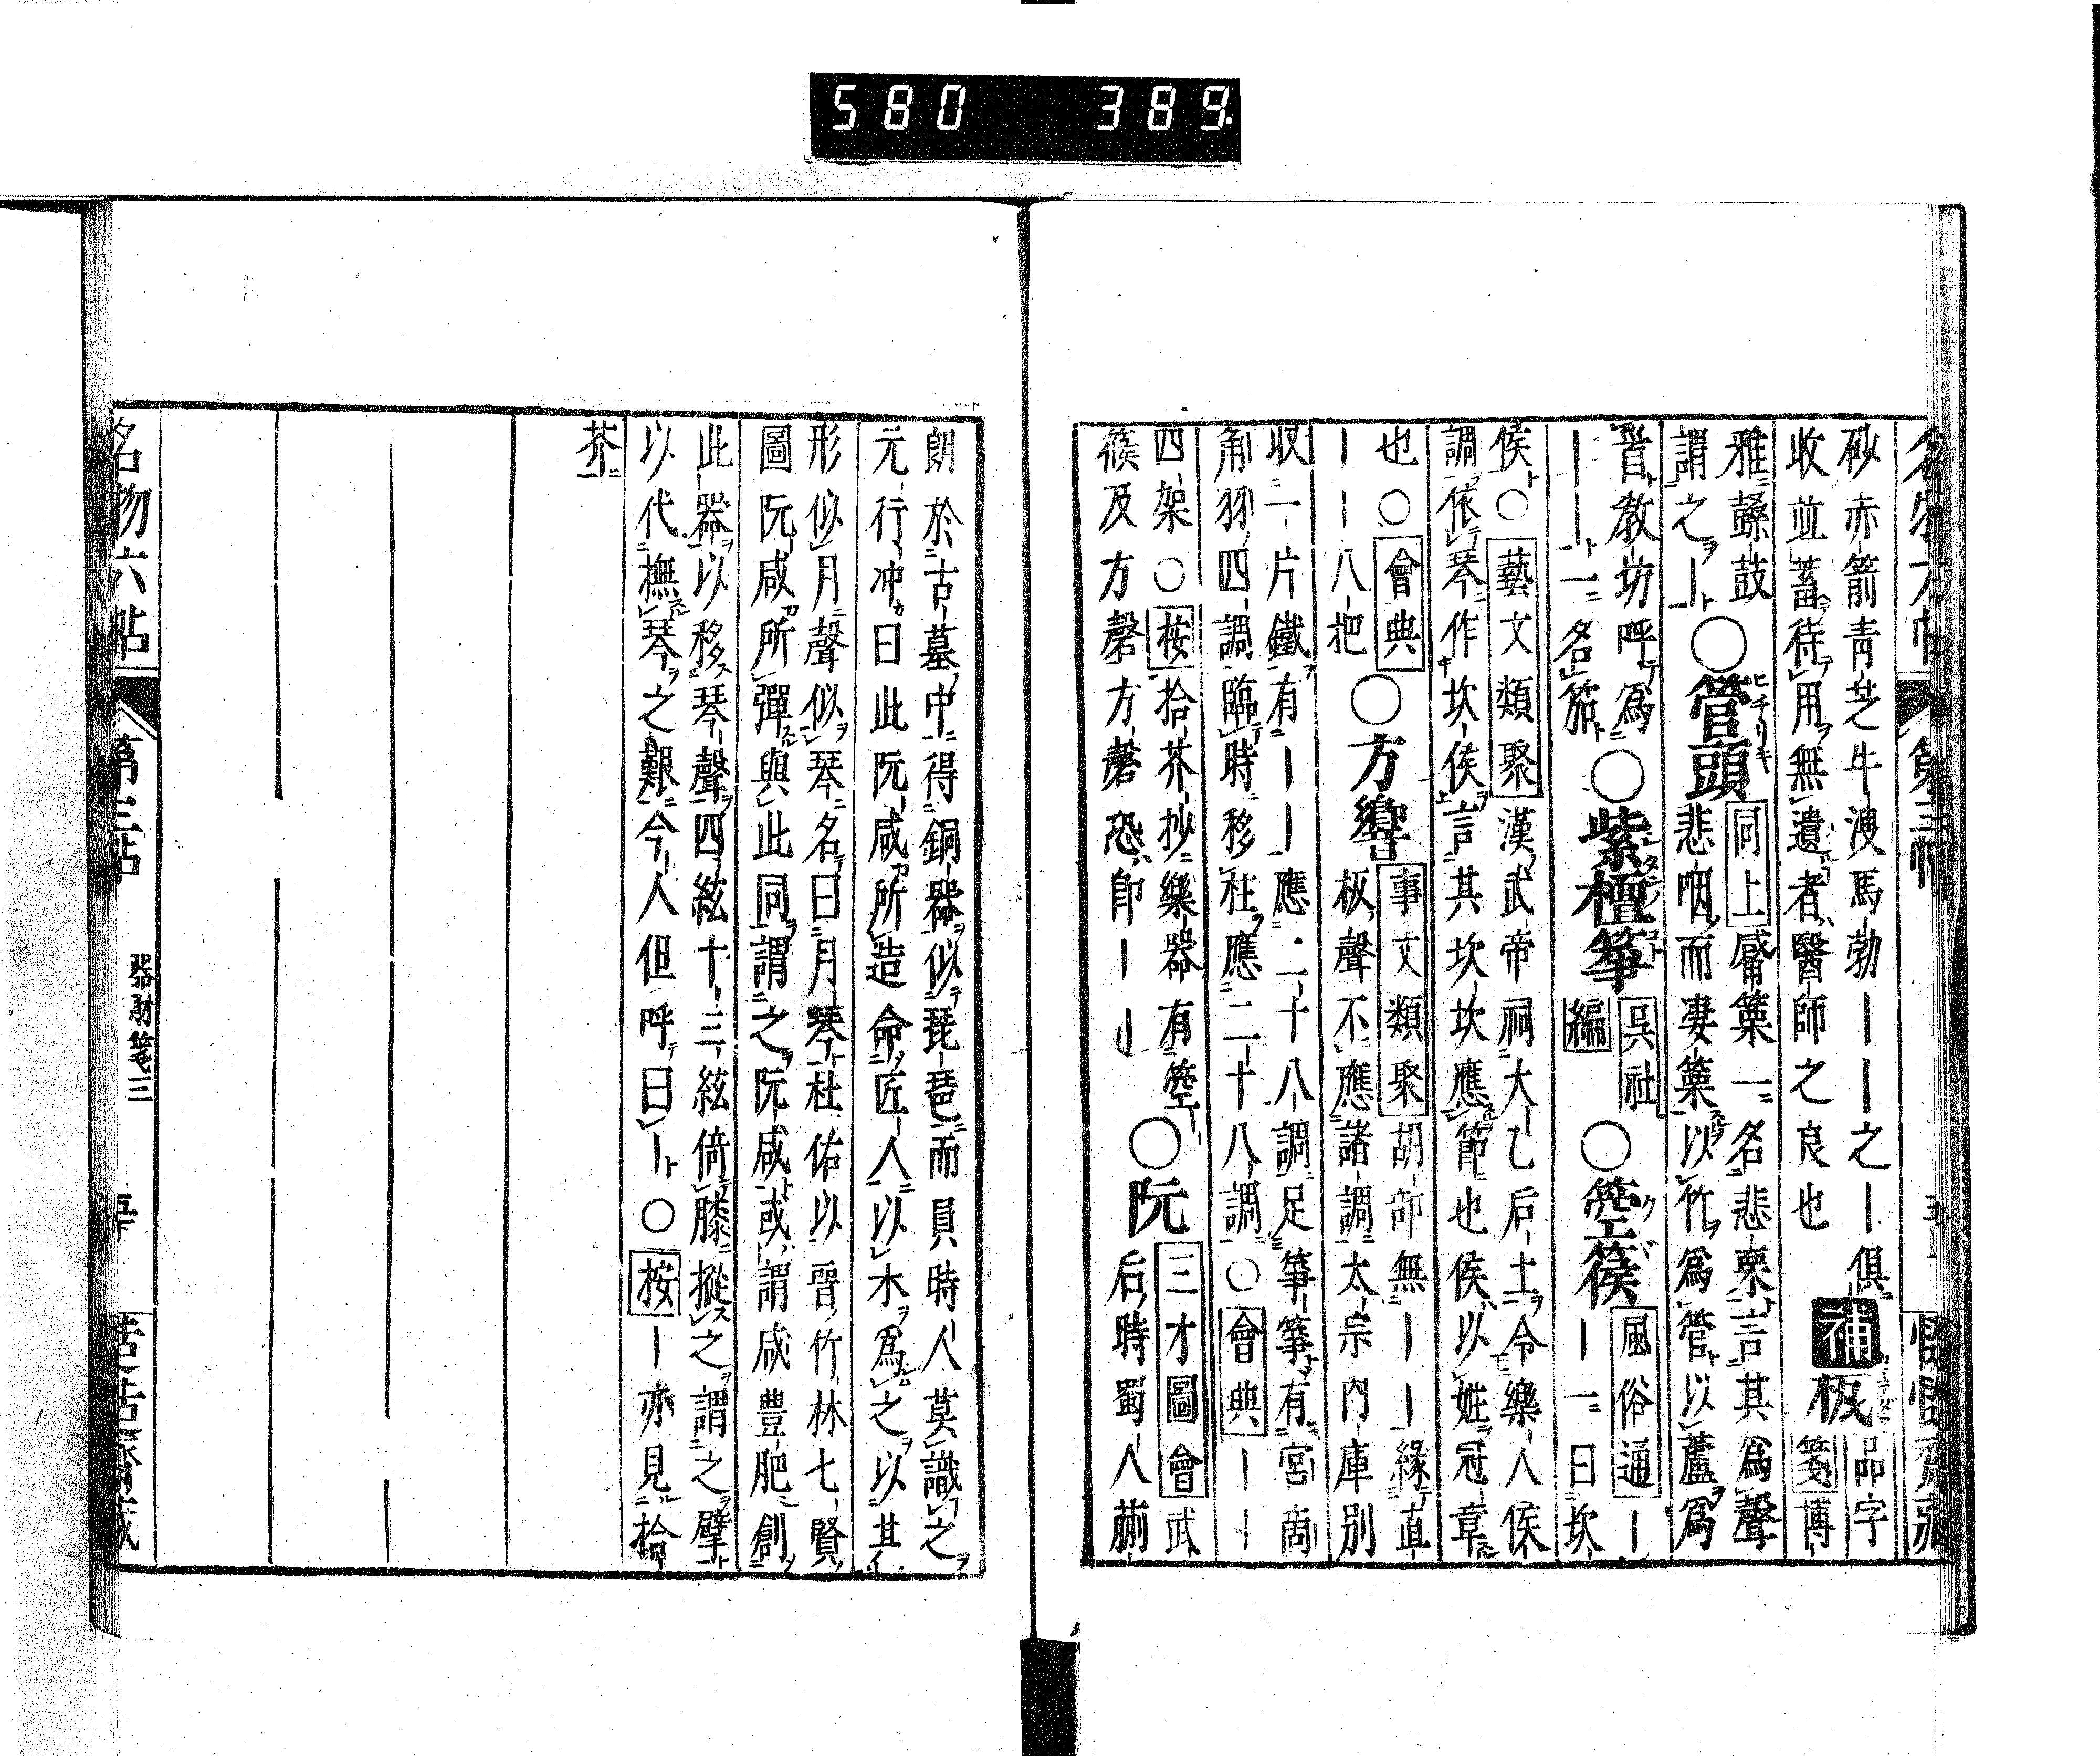 580 389
砂赤箭青芝牛溲馬勃｜｜｜之｜俱
收並蓄待用無遺者醫師之良也
補板
品字
箋博
雅鼛鼓
謂之｜
○管頭
ヒチリキ
同上
觱篥一名悲栗言其爲聲
悲咽而凄篥以竹爲管以蘆爲
｜｜｜一名笳
昔教坊呼爲
○紫檀箏
吳社
編
○箜篌
クゴ
風俗通｜
｜一曰坎
侯○藝文類聚漢武帝祠大乙后土令樂人侯
調依琴作坎侯言其坎坎應節也侯以姓冠章
也○會典
｜｜八把
○方響
事文類聚胡部無｜｜緣直
板聲不應諸調太宗內庫別
収一片鐵有｜｜應二十八調足箏箏有宮商
角羽四調臨時移柱應二十八調○會典｜｜
四架○按拾芥抄樂器有箜
篌及方磬方磬恐卽｜｜
○阮
三才圖會武
后時蜀人蒯
朗於古墓中得銅器似琵琶而員時人莫識之
元行冲曰此阮咸所造命匠人以木爲之以其
形似月聲似琴名曰月琴杜佑以晉竹林七賢
圖阮咸所彈與此同謂之阮咸或謂咸豊肥創
此器以移琴聲四絃十三絃倚膝摐之謂之擘
以代撫琴之艱今人但呼曰｜○按｜亦見拾
芥
名物六帖
第三帖
器財箋三